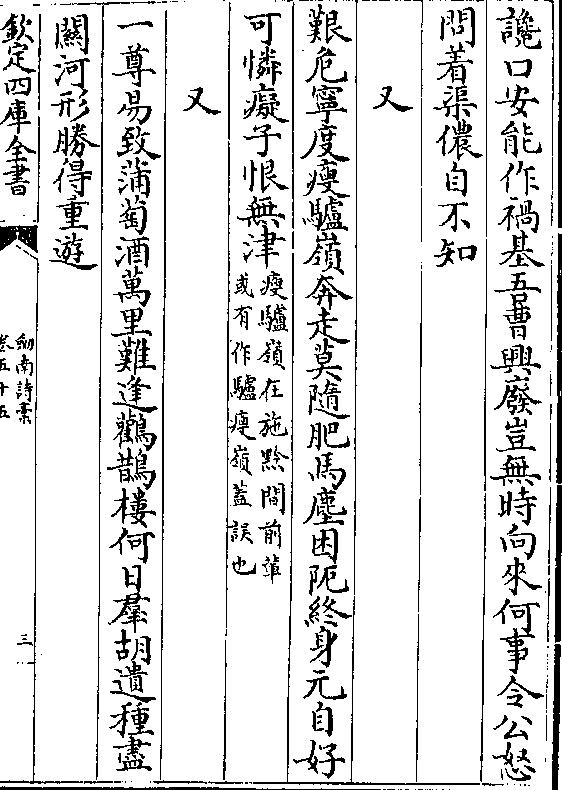 讒口安能作禍基吾曹興廢豈無時向來何事令公怒
問着渠儂自不知
又
艱危寧度瘦驢嶺奔走莫隨肥馬塵困阨終身元自好
可憐癡子恨無津瘦驢嶺在施黔間前輩
或有作驢瘦嶺蓋誤也
又
一尊易致蒲萄酒萬里難逢鸛鵲樓何日羣胡遺種盡
關河形勝得重遊
欽定四庫全書
劒南詩槀
卷五十五
三